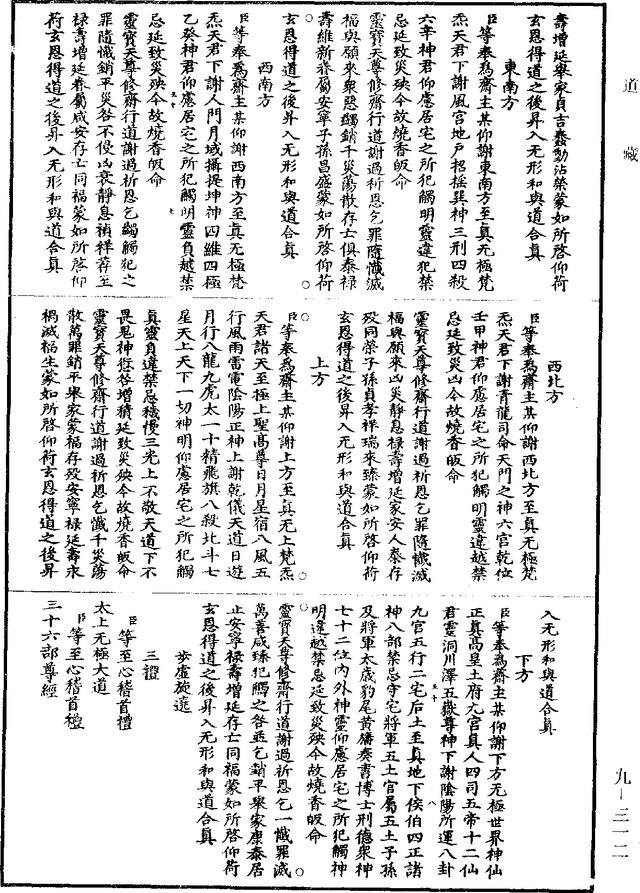 道藏
壽增延舉家貞吉蠢動沾榮蒙如所啓仰荷
玄恩得道之後昇入无形和與道合真
東南方
臣等奉爲齋主某仰謝東南方至真无極梵
炁天君下謝風宮地戶招搖巽神三刑四殺
六辛神君仰慮居宅之所犯觸明靈違犯禁
忌延致災殃今故燒香皈命
靈寶天尊修齋行道謝過祈恩乞罪隨懺滅
福與願來衆惡蠲銷千災蕩散存亡俱泰祿
壽維新眷屬安寧子孫昌盛蒙如所啓仰荷
玄恩得道之後昇入无形和與道合真
西南方
臣等奉爲齋主某仰謝西南方至真无極梵
炁天君下謝人門月域攝提坤神四維四極
乙癸神君仰慮居宅之所犯觸明靈負越禁
忌延致災殃今故燒香皈命
靈寶天尊修齋行道謝過祈恩乞蠲觸犯之
罪隨懺銷平災咎不侵凶衰靜息禎祥荐至
祿壽增延眷屬咸安存亡同福蒙如所啓仰
荷玄恩得道之後昇入无形和與道合真
西北方
臣等奉爲齋主某仰謝西北方至真无極梵
炁天君下謝青龍司命天門之神六宮乾位
壬甲神君仰慮居宅之所犯觸明靈違越禁
忌延致災凶今故燒香皈命
靈寶天尊修齋行道謝過祈恩乞罪隨懺滅
福與願來凶災靜息祿壽增延家安人泰存
歿同榮子孫貞孝祥瑞來臻蒙如所啓仰荷
玄恩得道之後昇入无形和與道合真
上方
臣等奉爲齋主某仰謝上方至真无上梵炁
天君諸天至極上聖高尊日月星宿八風五
行風雨雷電陰陽正神上謝乾儀天道日遊
月行八龍九虎太一十精飛旗八殺北斗七
星天上天下一切神明仰慮居宅之所犯觸
真靈負違禁忌穢慢三光上不敬天道下不
畏鬼神愆咎增積延致災殃今故燒香皈命
靈寶天尊修齋行道謝過祈恩乞懺千災蕩
散萬罪銷平舉家蒙福存歿安寧祿延壽永
禍滅福生蒙如所啓仰荷玄恩得道之後昇
入无形和與道合真
下方
臣等奉爲齋主某仰謝下方无極世界神仙
正真高皇土府九宮真人四司五帝十二仙
君靈洞川澤五嶽尊神下謝陰陽所運八卦
九宮五行二宅后土至真地下侯伯四正諸
神八部禁忌守宅將軍五土官屬五土子孫
及將軍太歲豹尾黃旛奏書博士刑德衆神
七十二位內外神靈仰慮居宅之所犯觸神
明違越禁忌延致災殃今故燒香皈命
靈寶天尊修齋行道謝過祈恩乞一懺罪滅
萬善咸臻犯觸之咎並乞銷平舉家康泰居
止安寧祿壽增延存亡同福蒙如所啓仰荷
玄恩得道之後昇入无形和與道合真
步虛旋遶
三禮
臣等至心稽首禮
太上无極大道
臣等至心稽首禮
三十六部尊經
九－三一二